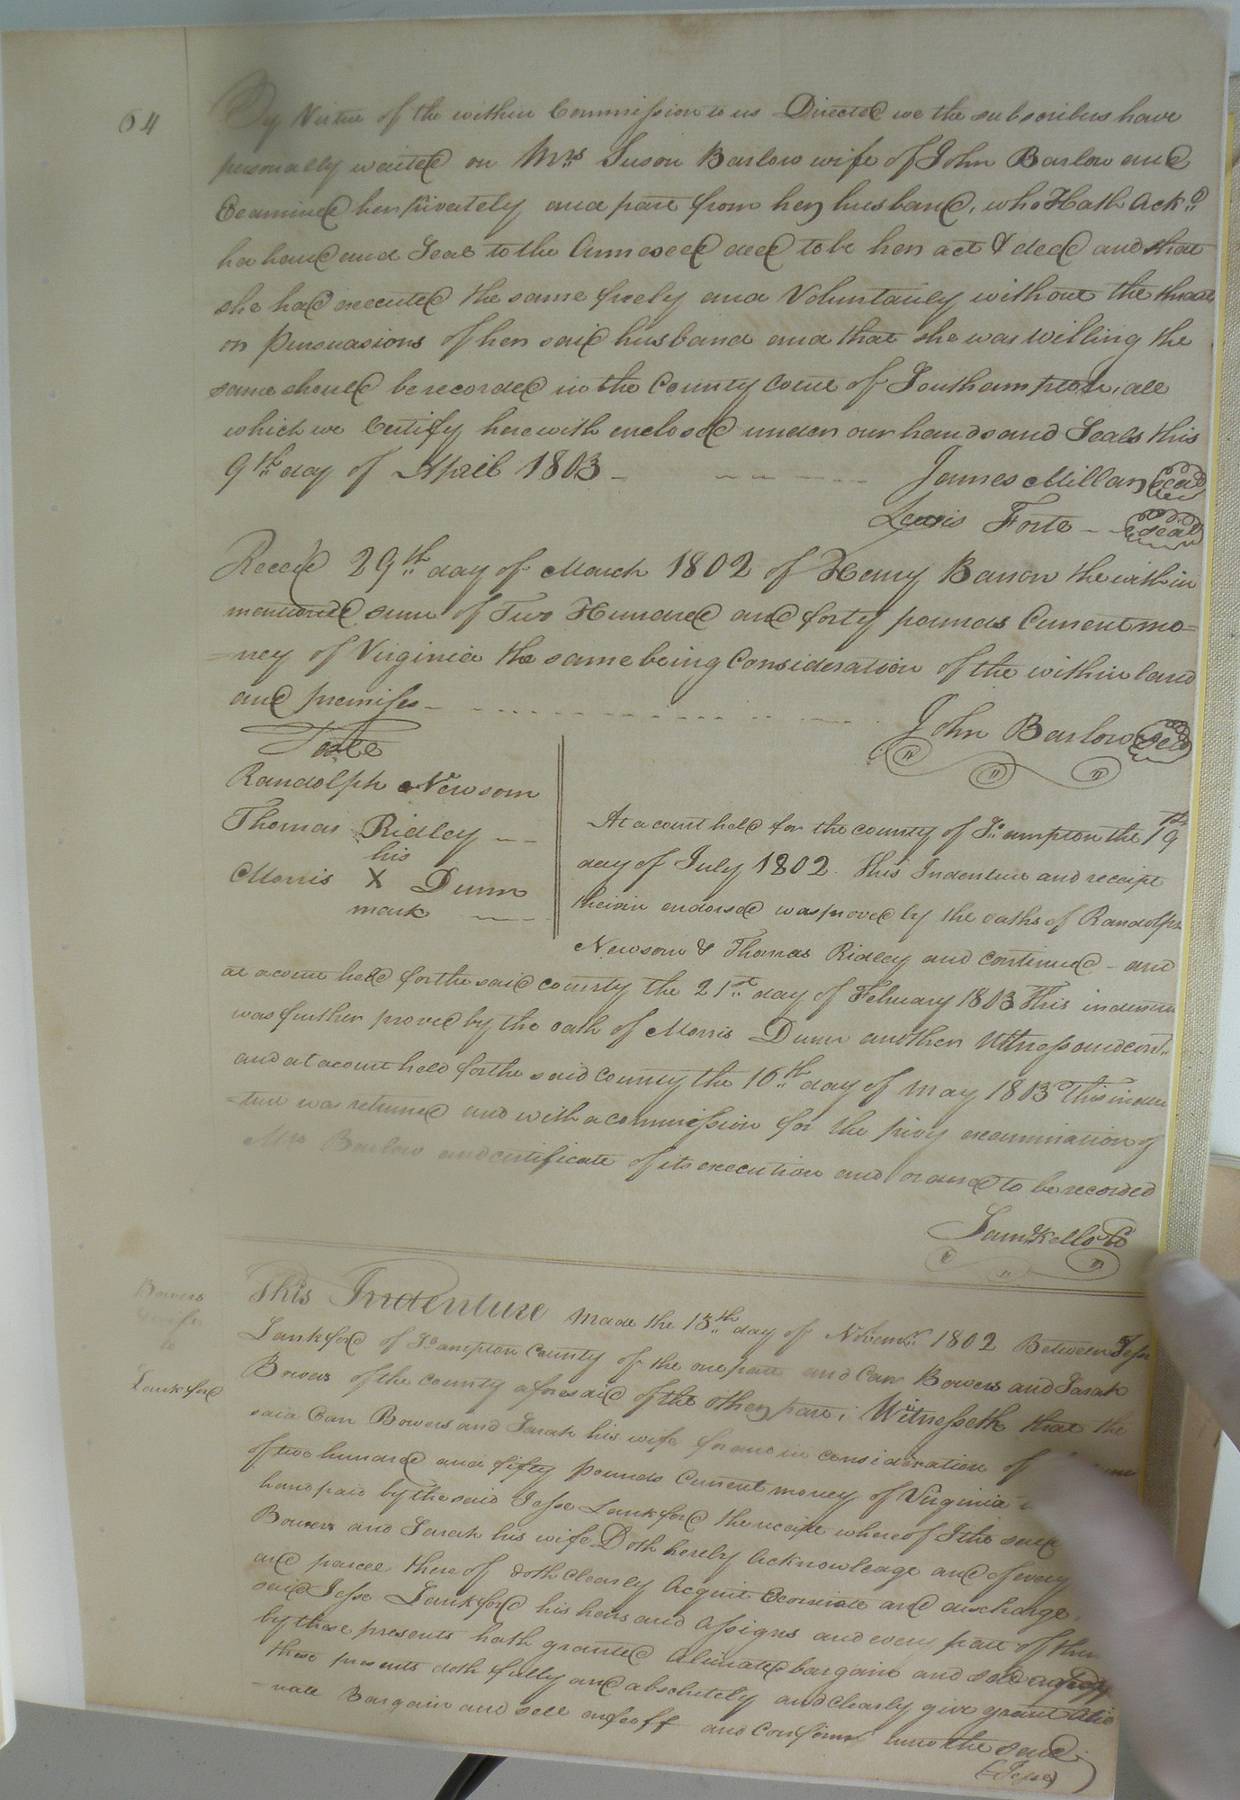 64
By Virtue of the within Commission to us Directed we the subscribers have
personally waited on Mrs Suson Barlow wife of John Barlow and
Examined her privately and part from her husband, who Hath Ackd
her hand and Seal to the Annexed deed to be her act & deed and that
she had executed the same freely and Voluntarily without the threats
or Persuasions of her said husband and that she was willing the
same should be recorded in the County Court of Southampton, all
which we Certify herewith enclosed under our hands and Seals this
9th day of April 1803
James Millar Seal
Lewis Forte Seal
Receed 29th day of March 1802 of Henry Barron the within
mentioned sum of Two Hundred and forty pounds Current mo=
=ney of Virginia the same being Consideration of the within land
and premises
John Barlow Seal
Teste
Randolph Newsom
Thomas Ridley
his
Morris X Dunn
mark
At a court held for the county of So.ampton the 19th
day of July 1802. This Indenture and receipt
therein endorsed was proved by the oaths of Randolph
Newsom & Thomas Ridley and continued - and
at a court held for the said county the 21st day of February 1803 This indenture
was further proved by the oath of Morris Dunn another Witness and cont.
and at a court held for the said county the 16th day of May 1803 This inden
=ture was returned and with a commission for the privy examination of
Mrs Barlow and certificate of its execution and orderd to be recorded
Saml Kello Cc
Bowers
& wife
to
Lankford
This Indenture made the 15th day of Novemr 1802 Between Jesse
Lankford of So.ampton County of the one part and Carr Bowers and Sarah
Bowers of the county aforesaid of the other part; Witnesseth that the
said Carr Bowers and Sarah his wife for and in consideration of
of two hundred and fifty pounds Current money of Virginia
hand paid by the said Jesse Lankford the receipt whereof
Bowers and Sarah his wife Doth hereby Acknowledge and of every
and parcel thereof doth clearly Acquit Exonirate and discharge,
said Jesse Lankford his heirs and Assigns and every part of them
by these presents hath granted Alinated bargain and sold
these presents doth fully and absolutely and clearly give grant Alie
=nate Bargain and sell enfeoff and Confirm unto the said
(Jesse)